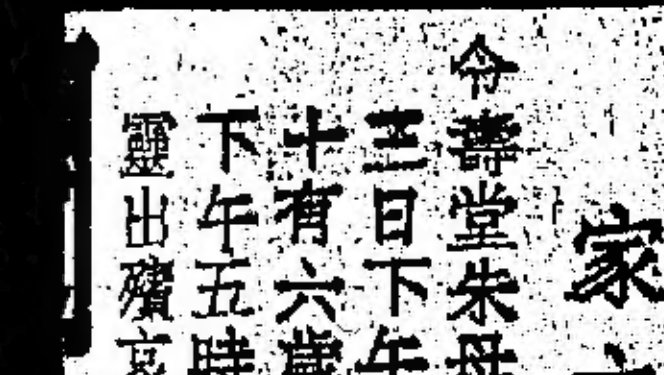 家
令壽堂朱母
三日下午
十有六歲
下午五時
靈出殯哀